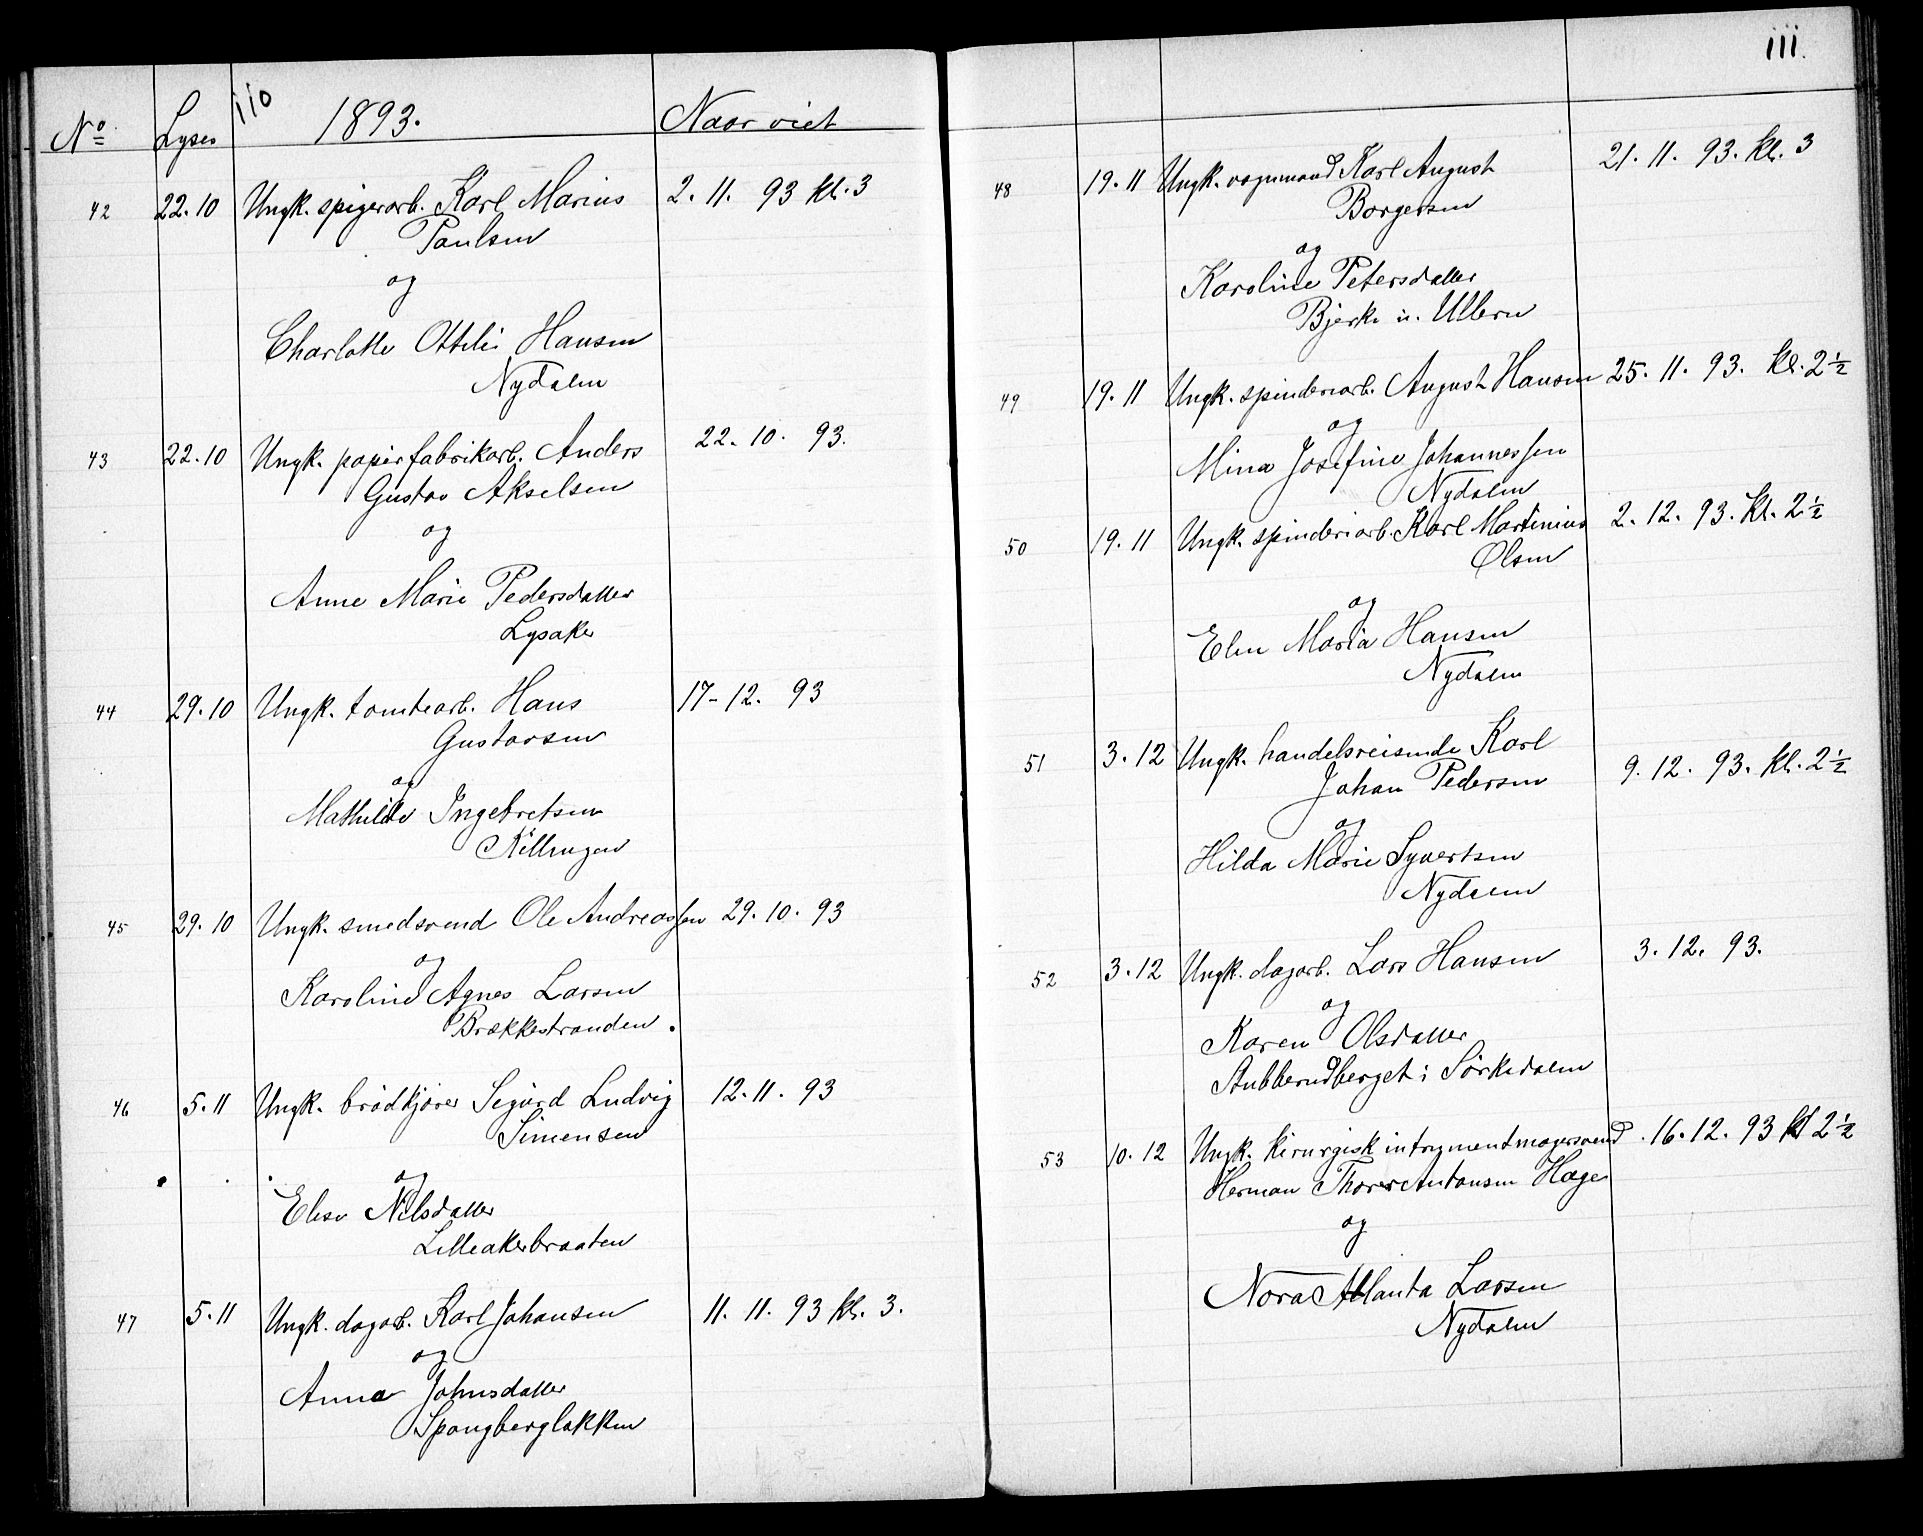 110
No Lyses 1893. Naar viet
42 22.10 Ungk. spigerarb. Karl Marius 2. 11. 93 kl. 3
Paulsen
og
Charlotte Ottilie Hansen
Nydalen
43 22.10 Ungk. papirfabrikarb. Anders 22. 10. 93.
Gustav Akselsen
og
Anne Marie Pedersdatter
Lysaker
44 29.10 Ungk. tomtearb. Hans 17-12. 93
Gustavsen
og
Mathilde Ingebretsen
Killingen
45 29.10 Ungk. smedsvend Ole Andreassen 29. 10. 93
og
Karoline Agnes Larsen
Brækkestranden.
46 5.11 Ungk. brödkjører Sigurd Ludvig 12. 11. 93
Simensen
og
Elise Nilsdatter
Lilleakerbraaten
47 5.11 Ungk. dagarb. Karl Johansen 11. 11. 93 kl. 3.
og
Anna Johnsdatter
Spangbergløkken
111.
48 19.11 Ungk. vognmand Karl August 21. 11. 93. kl. 3
Borgersen
og
Karoline Petersdatter
Bjerke u. Ullern
49 19.11 Ungk. spinderiarb. August Hansen 25. 11. 93. kl. 2 1/2
og
Mina Josefine Johannessen
Nydalen
50 19.11 Ungk. spinderiarb. Karl Martinius 2. 12. 93. kl. 2 1/2
Olsen
og
Elen Maria Hansen
Nydalen
51 3.12 Ungk. handelsreisende Karl
Johan Pedersen 9. 12. 93. kl. 2 1/2
og
Hilda Marie Syvertsen
Nydalen
52 3.12 Ungk. dagarb. Lars Hansen 3. 12. 93.
og
Karen Olsdatter
Stubberudberget i Sörkedalen
53 10.12 Ungk. kirurgisk intrumentmagersvend 16. 12. 93 kl 2 1/2
Herman Thorer Antonsen Hage
og
Nora Atlanta Larsen
Nydalen